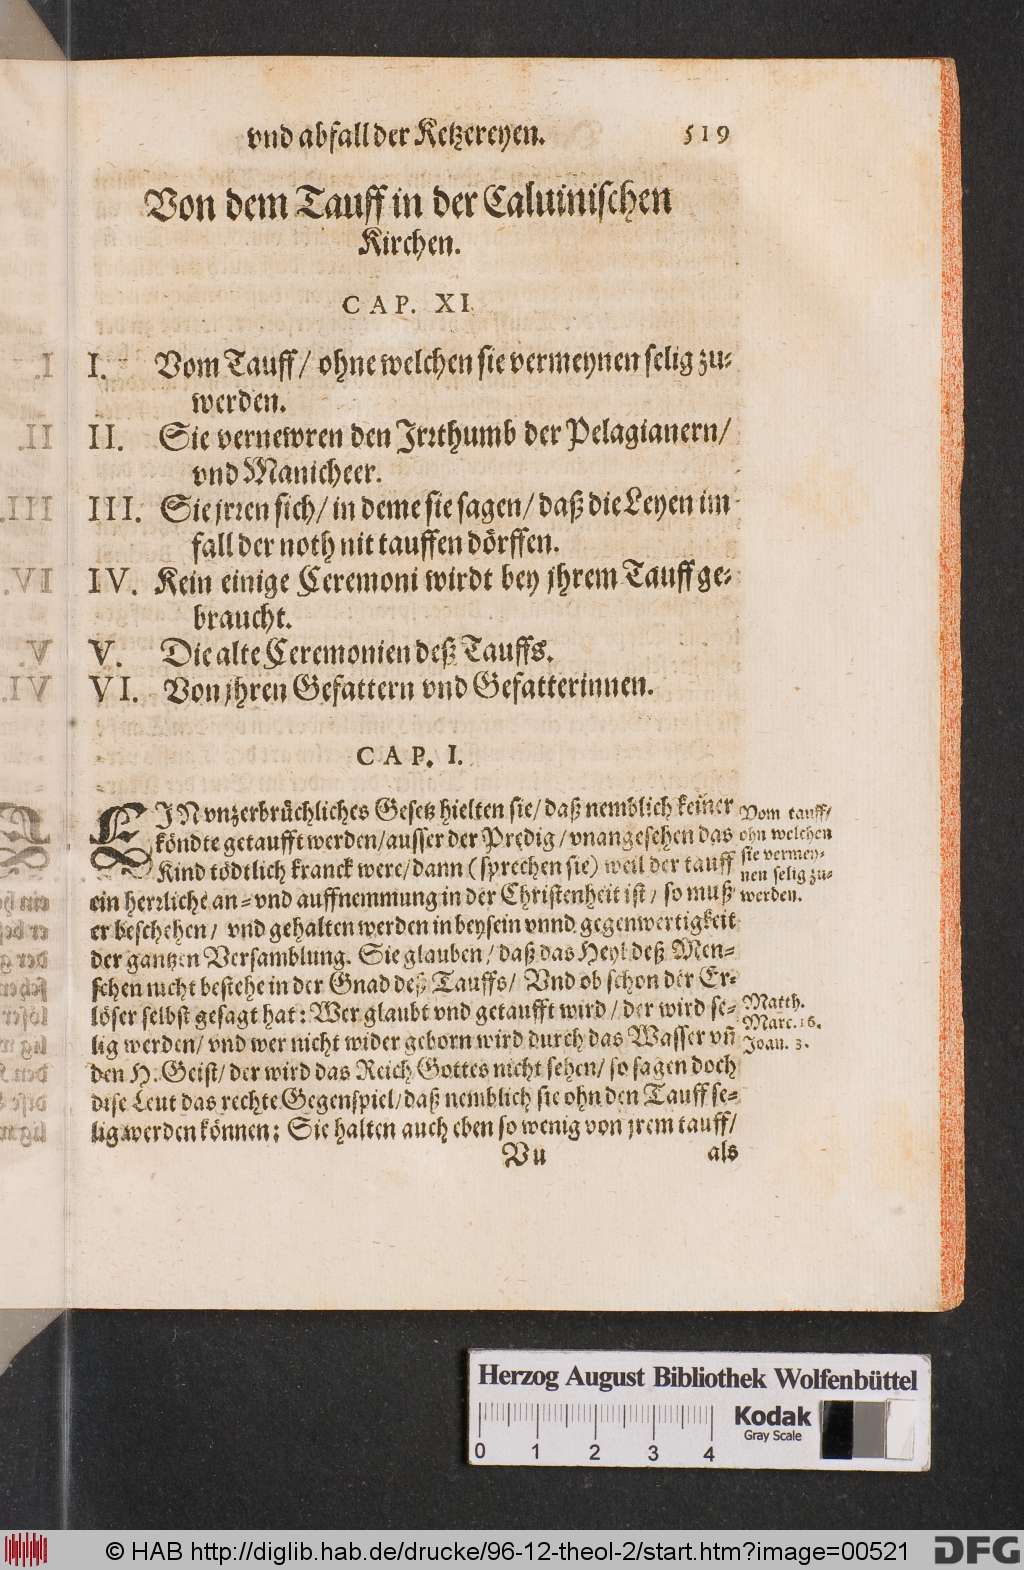 vnd abfall der Ketzereyen. 519
Von dem Tauff in der Caluinischen
Kirchen.
CAP. XI.
I. Vom Tauff/ ohne welchen sie vermeynen selig zu=
werden.
II. Sie vernewren den Irrthumb der Pelagianern/
vnd Manicheer.
III. Sie jrren sich/ in deme sie sagen/ daß die Leyen im
fall der noth nit tauffen dörffen.
IV. Kein einige Ceremoni wirdt bey jhrem Tauff ge=
braucht.
V. Die alte Ceremonien deß Tauffs.
VI. Von jhren Gefattern vnd Gefatterinnen.
CAP. I.
EIN vnzerbrüchliches Gesetz hielten sie/ daß nemblich keiner
köndte getaufft werden/ ausser der Predig/ vnangesehen das
Kind tödtlich kranck were/ dann (sprechen sie) weil der tauff
ein herrliche an= vnd auffnemmung in der Christenheit ist/ so muß
er beschehen/ vnd gehalten werden in beysein vnnd gegenwertigkeit
der gantzen Versamblung. Sie glauben/ daß das Heyl deß Men=
schen nicht bestehe in der Gnad deß Tauffs/ Vnd ob schon der Er=
löser selbst gesagt hat: Wer glaubt vnd getaufft wird/ der wird se=
lig werden/ vnd wer nicht wider geborn wird durch das Wasser vñ
den H. Geist/ der wird das Reich Gottes nicht sehen/ so sagen doch
dise Leut das rechte Gegenspiel/ daß nemblich sie ohn den Tauff se=
lig werden können; Sie halten auch eben so wenig von jrem tauff/
Vu als
Vom tauff/
ohn welchen
sie vermey=
nen selig zu=
werden.
Matth.
Marc. 16.
Joan. 3.
Herzog August Bibliothek Wolfenbüttel
0 1 2 3 4
Kodak
Gray Scale
© HAB http://diglib.hab.de/drucke/96-12-theol-2/start.htm?image=00521
DFG